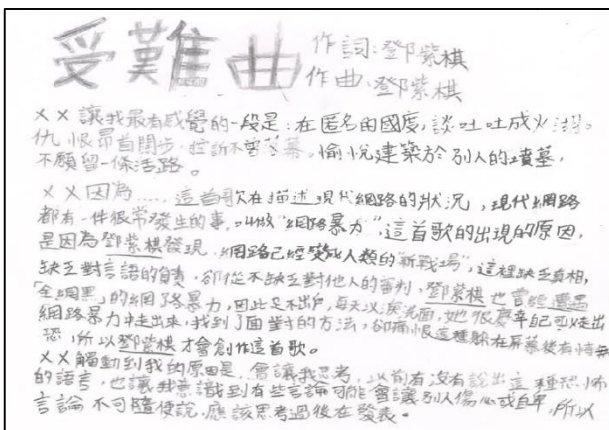 受難曲
作詞:鄧紫棋
作曲:鄧紫棋
××讓我最有感覺的一段是:在匿名的國度,談吐吐成火湖。
仇恨昂首闊步,控訴不需落幕,愉悅建築於別人的墳墓,
不願留一條活路。
××因為....這首歌在描述現代網路的狀況,現代網路
都有一件很常發生的事,叫做"網路暴力",這首歌的出現的原因,
是因為鄧紫棋發現,網路已經變成人類的"新戰場",這裡缺乏真相,
缺乏對言語的負責,卻從不缺乏對他人的審判,鄧紫棋也曾經遭遇
「全網黑」的網路暴力,因此足不出戶,每天以淚洗面,她很慶幸自己可以走出
網路暴力中走出來,找到了面對的方法,卻痛恨這種躲在屏幕後有恃無
恐,所以鄧紫棋才會創作這首歌。
××觸動到我的原因是,會讓我思考,以前有沒有說出這種恐怖
的語言,也讓我意識到有些言論可能會讓別人傷心或自卑,所以
言論不可隨便說,應該思考過後在發表。